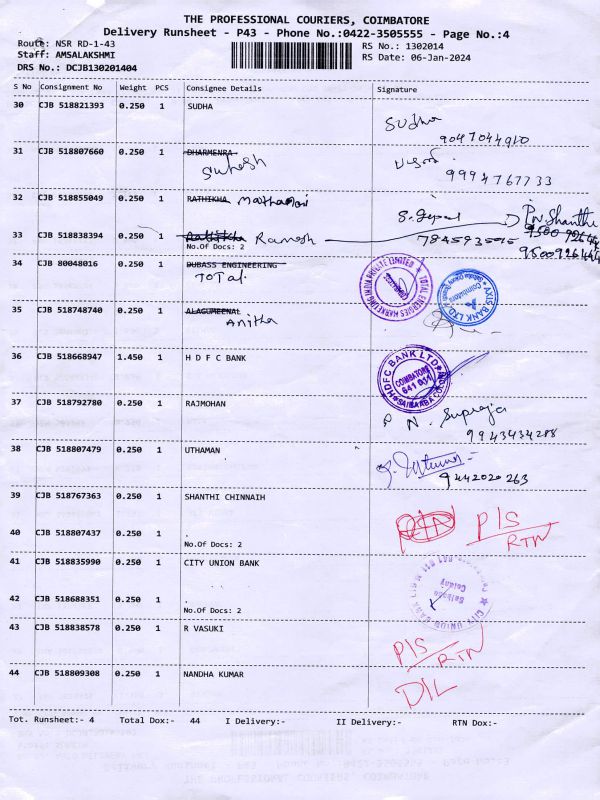 THE PROFESSIONAL COURIERS, COIMBATORE
Delivery Runsheet - P43 - Phone No.:0422-3505555 - Page No.:4
Route: NSR RD-1-43 RS No.: 1302014
Staff: AMSALAKSHMI RS Date: 06-Jan-2024
DRS No.: DCJB130201404
S No Consignment No Weight PCS Consignee Details Signature
30 CJB 518821393 0.250 1 SUDHA
Sudha
9047044910
31 CJB 518807660 0.250 1 DHARMENRA
Suhesh
9994767733
32 CJB 518855049 0.250 1 RATHIKHA
33 CJB 518838394 0.250 1 Rathikha Ramesh
No.Of Docs: 2
34 CJB 80048016 0.250 1 DUBASS ENGINEERING
TOTAL
TOTAL ENERGIES MARKETING INDIA PRIVATE LIMITED
AXIS BANK LTD
Coimbatore
35 CJB 518748740 0.250 1 ALAGUMEENAI
Anitha
36 CJB 518668947 1.450 1 H D F C BANK
HDFC BANK LTD
COIMBATORE
641 011
SAIBABA COLONY
37 CJB 518792780 0.250 1 RAJMOHAN
P N. Supraja
9943434288
38 CJB 518807479 0.250 1 UTHAMAN
9442020263
39 CJB 518767363 0.250 1 SHANTHI CHINNAIH
P/S
RTN
40 CJB 518807437 0.250 1 .
No.Of Docs: 2
41 CJB 518835990 0.250 1 CITY UNION BANK
CITY UNION BANK
Colony
42 CJB 518688351 0.250 1 .
No.Of Docs: 2
43 CJB 518838578 0.250 1 R VASUKI
P/S
RTN
44 CJB 518809308 0.250 1 NANDHA KUMAR
D/L
Tot. Runsheet:- 4 Total Dox:- 44 I Delivery:- II Delivery:- RTN Dox:-